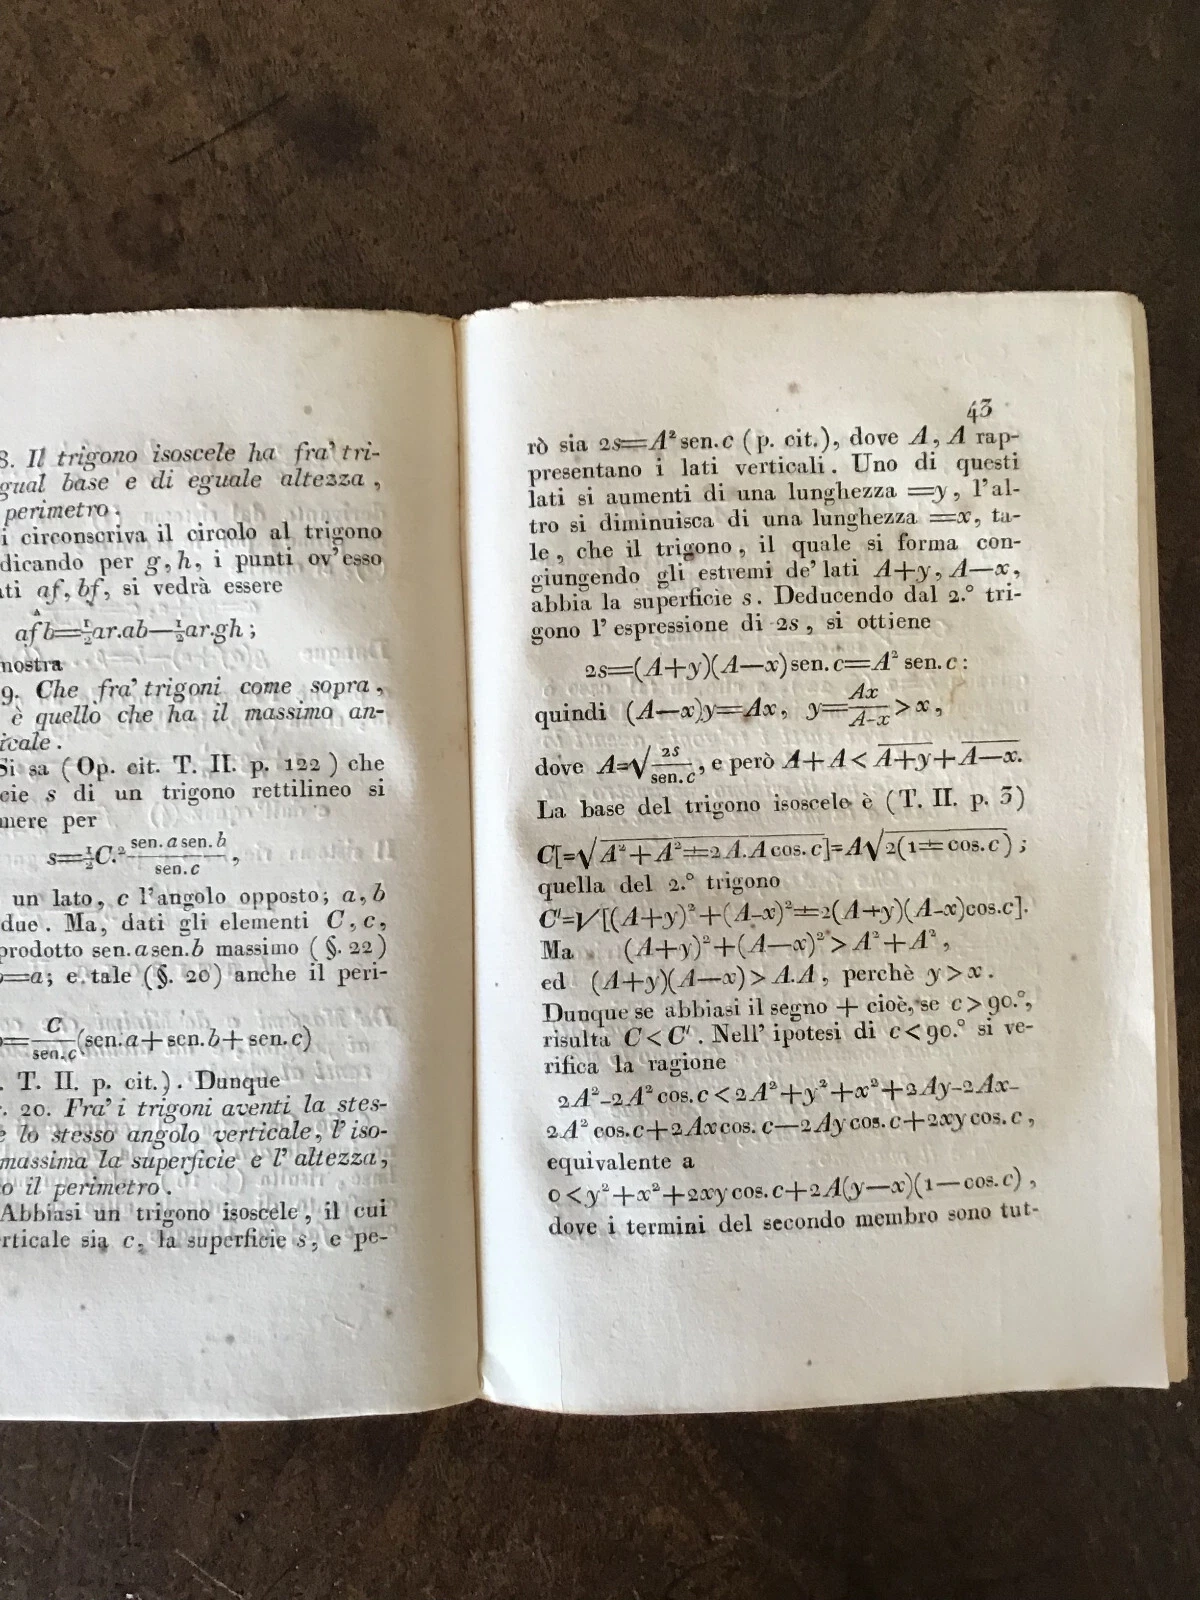 8. Il trigono isoscele ha fra' tri-
gual base e di eguale altezza,
perimetro.
i circonscriva il circolo al trigono
dicando per g, h, i punti ov' esso
ati af, bf, si vedrà essere
afb=½ar.ab—½ar.gh;
mostra
9. Che fra' trigoni come sopra,
è quello che ha il massimo an-
icale.
Si sa (Op. cit. T. II. p. 122) che
cie s di un trigono rettilineo si
mere per
s=½C.² sen. a sen. b / sen. c,
un lato, c l'angolo opposto; a, b
due. Ma, dati gli elementi C, c,
prodotto sen. a sen. b massimo (§. 22)
=a; e tale (§. 20) anche il peri-
= C / sen. c (sen. a + sen. b + sen. c)
. T. II. p. cit.). Dunque
. 20. Fra' i trigoni aventi la stes-
e lo stesso angolo verticale, l' iso-
massima la superficie e l' altezza,
o il perimetro.
Abbiasi un trigono isoscele, il cui
rticale sia c, la superficie s, e pe-
43
rò sia 2s=A² sen. c (p. cit.), dove A, A rap-
presentano i lati verticali. Uno di questi
lati si aumenti di una lunghezza =y, l'al-
tro si diminuisca di una lunghezza =x, ta-
le, che il trigono, il quale si forma con-
giungendo gli estremi de' lati A+y, A—x,
abbia la superficie s. Deducendo dal 2.° tri-
gono l' espressione di 2s, si ottiene
2s=(A+y)(A—x) sen. c=A² sen. c:
quindi (A—x)y=Ax, y= Ax / A-x > x,
dove A=√ 2s / sen. c, e però A+A < A+y + A—x.
La base del trigono isoscele è (T. II. p. 3)
C[=√A²+A²±2A.A cos. c]=A√2(1±cos. c);
quella del 2.° trigono
C'=√[(A+y)²+(A-x)²±2(A+y)(A-x)cos. c].
Ma (A+y)²+(A—x)² > A²+A²,
ed (A+y)(A—x) > A.A, perchè y > x.
Dunque se abbiasi il segno + cioè, se c > 90.°,
risulta C < C'. Nell' ipotesi di c < 90.° si ve-
rifica la ragione
2A²-2A² cos. c < 2A²+y²+x²+2Ay-2Ax-
2A² cos. c+2Ax cos. c—2Ay cos. c+2xy cos. c,
equivalente a
0 < y²+x²+2xy cos. c+2A(y—x)(1—cos. c),
dove i termini del secondo membro sono tut-